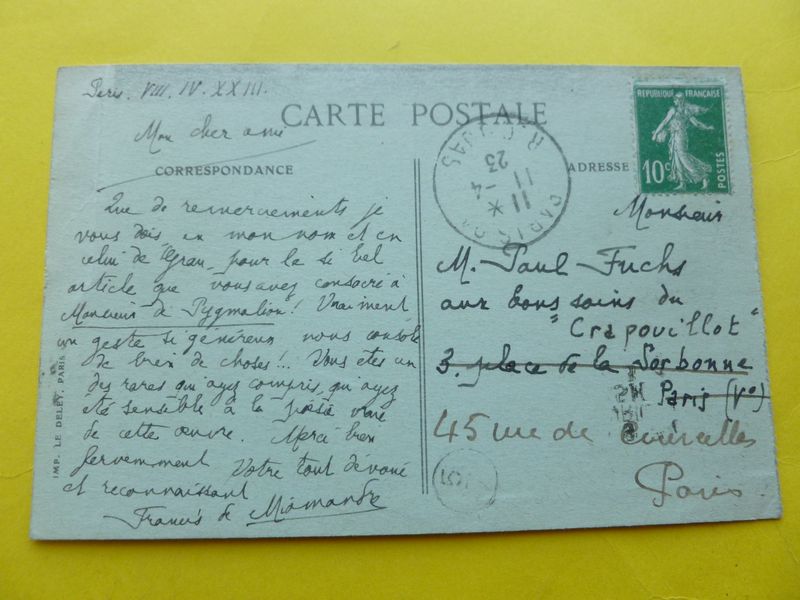 Paris. VIII. IV. XXIII.
CARTE POSTALE
Mon cher ami
CORRESPONDANCE
Que de remerciements je
vous dois, en mon nom et en
celui de Grau, pour le si bel
article que vous avez consacré à
Monsieur de Pygmalion! Vraiment
un geste si généreux nous console
de bien de choses!.. Vous êtes un
des rares qui ayez compris, qui ayez
été sensible à la poésie vraie
de cette œuvre. Merci bien
fervemment Votre tout dévoué
et reconnaissant
Francis de Miomandre
IMP. LE DELEY, PARIS
REPUBLIQUE FRANÇAISE
10c
POSTES
R. CUJAS
11 - 4
23
ADRESSE
Monsieur
M. Paul Fuchs
aux bons soins du
"Crapouillot"
3. place de la Sorbonne
Paris (Ve)
45 rue de Courcelles
Paris